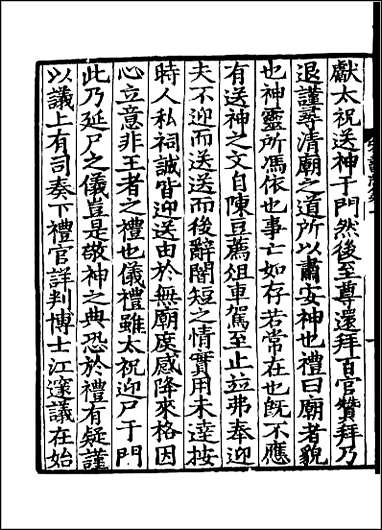 獻太祝送神于門然後至尊還拜百官贊拜乃
退謹尋清廟之道所以肅安神也禮曰廟者貌
也神靈所馮依也事亡如存若常在也旣不應
有送神之文自陳豆薦俎車駕至止拉弗奉迎
夫不迎而送送而後辭闇短之情實用未達按
時人私祠誠皆迎送由於無廟庻感降來格因
心立意非王者之禮也儀禮雖太祝迎尸于門
此乃延尸之儀豈是敬神之典恐於禮有疑謹
以議上有司奏下禮官詳判博士江邃議在始